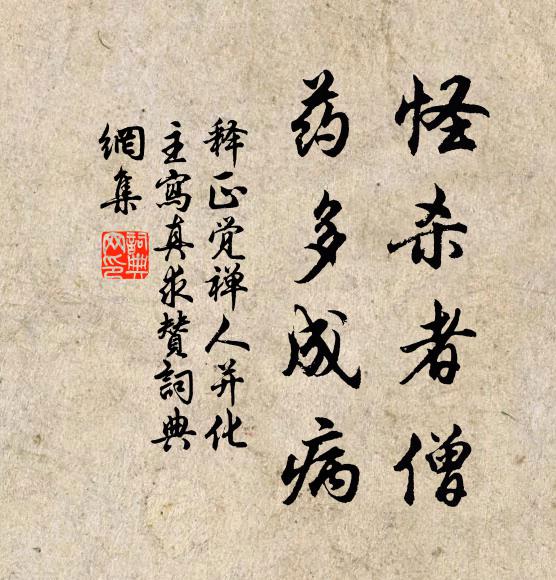 怪杀者僧
药多成病
释正觉禅人并化
主写真求赞词典
网集
词典
网印